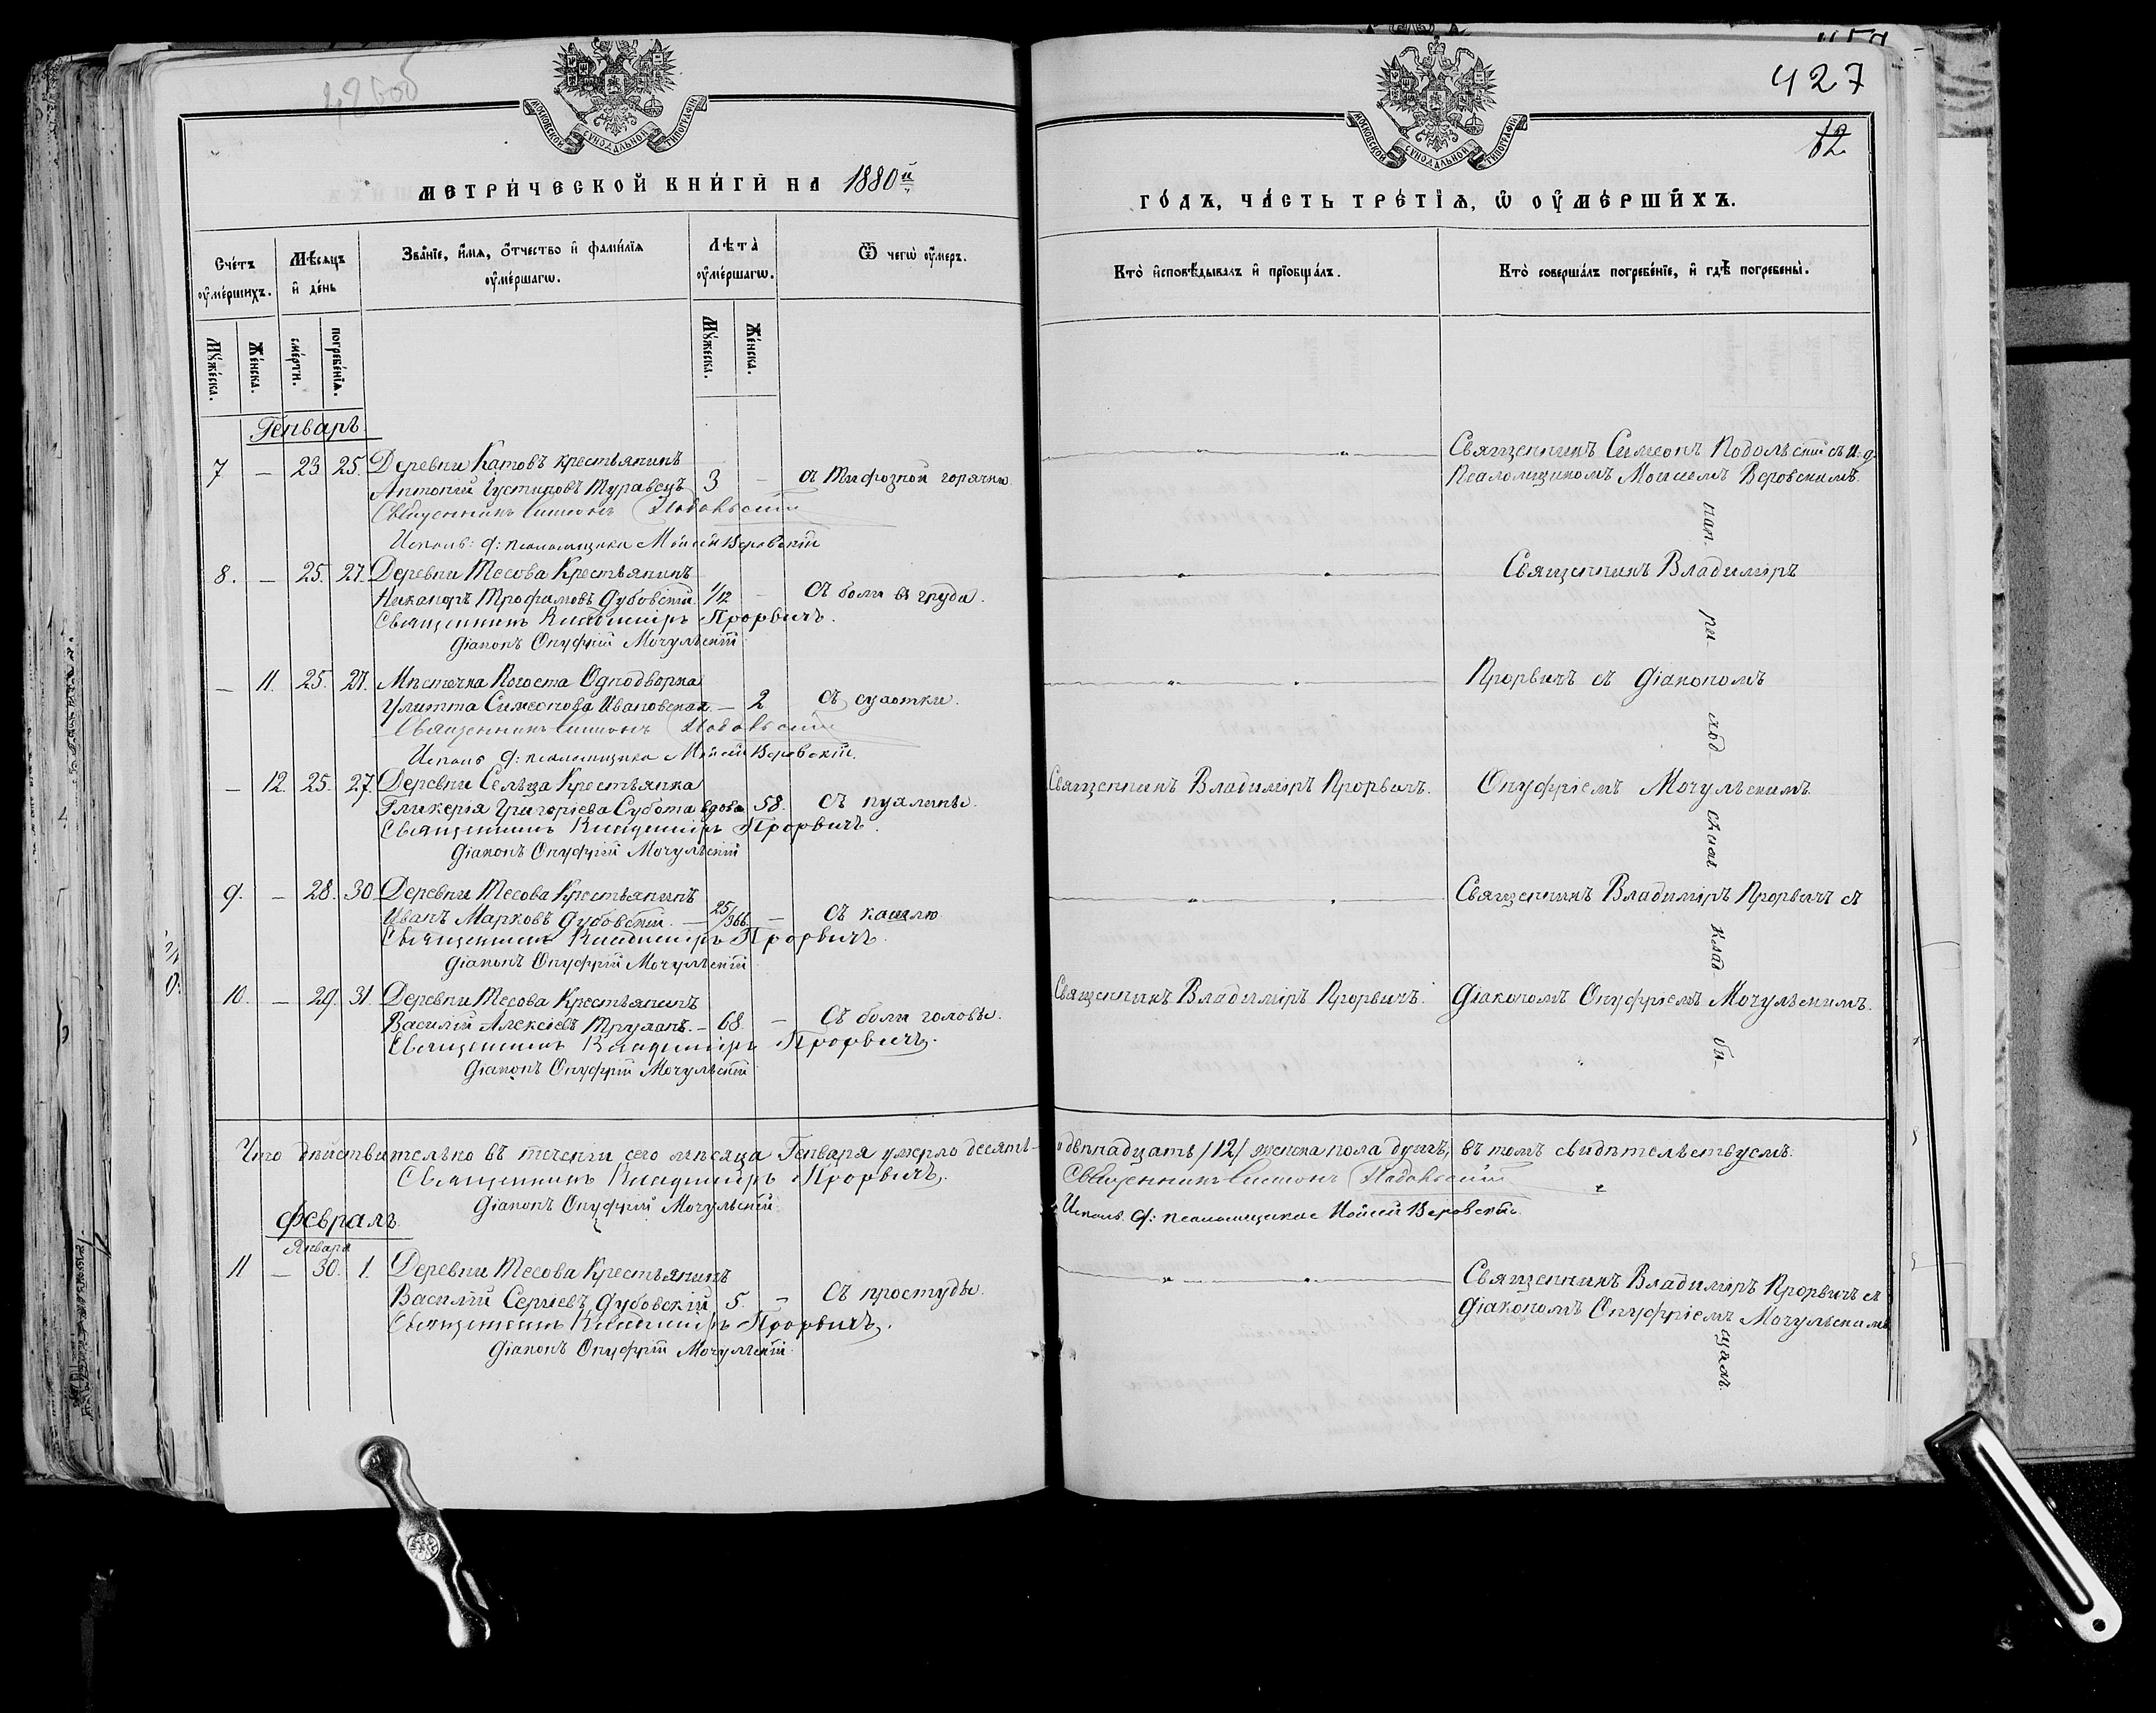 427
12
МОСКОВСКОЙ СѴНОДАЛЬНОЙ ТИПОГРАФІИ
МОСКОВСКОЙ СѴНОДАЛЬНОЙ ТИПОГРАФІИ
МЕТРИЧЕСКОЙ КНИГИ НА 1880й
ГОДЪ, ЧАСТЬ ТРЕТІѦ, Ѡ ОУМЕРШИХЪ.
Счетъ оумершихъ.
Мѣсѧцъ и день
Званіе, имѧ, отчество и фамиліѧ оумершагѡ.
Лѣта оумершагѡ.
Ѿ чегѡ оумеръ.
Кто исповѣдывалъ и пріобщалъ.
Кто совершалъ погребеніе, и гдѣ погребены.
Мужеска. Женска. смерти. погребеніѧ. Мужеска. Женска.
Генварь
7 — 23 25. Деревни Катовъ крестьянинъ
Антоній Іустиновъ Муравецъ 3 — съ тифозной горячки
Священникъ Симеонъ Подольскій
Исполъ: д: псаломщика Моисей Веровскій
Священникъ Симеонъ Подольскій съ и. д.
Псаломщикомъ Моисеемъ Веровскимъ.
8. — 25. 27. Деревни Тесова Крестьянинъ
Никаноръ Трофимовъ Дубовскій. 1/12 — Съ боли въ груди.
Священникъ Владиміръ Прорвичъ.
Діаконъ Онуфрій Мочульскій
Священникъ Владиміръ
— 11. 25. 27. Мѣстечка Погоста Однодворка
Улитта Симеонова Ивановская — 2 съ сухотки.
Священникъ Симеонъ Подольскій
Исполъ д: псаломщика Моисей Веровскій.
Прорвичъ съ Діакономъ
— 12. 25. 27. Деревни Сельца Крестьянка
Гликерія Григоріева Субота вдова 58. съ пухлины.
Священникъ Владиміръ Прорвичъ.
Діаконъ Онуфрій Мочульскій
Священникъ Владиміръ Прорвичъ.
Онуфріемъ Мочульскимъ.
9. — 28. 30 Деревни Тесова Крестьянинъ
Иванъ Марковъ Дубовскій. — 25/366 — съ кашлю
Священникъ Владиміръ Прорвичъ.
Діаконъ Онуфрій Мочульскій
Священникъ Владиміръ Прорвичъ съ
10. — 29. 31. Деревни Тесова Крестьянинъ
Василій Алексіевъ Труханъ. — 68. — Съ боли головы.
Священникъ Владиміръ Прорвичъ.
Діаконъ Онуфрій Мочульскій
Священникъ Владиміръ Прорвичъ.
Діакономъ Онуфріемъ Мочульскимъ.
Что дѣйствительно въ теченіи сего мѣсяца Генваря умерло десять
и двѣнадцать /12/ женска пола душъ, въ томъ свидѣтельствуемъ.
Священникъ Владиміръ Прорвичъ.
Діаконъ Онуфрій Мочульскій
Священникъ Симеонъ Подольскій
Исполъ. д: псаломщика Моисей Веровскій.
Февраль
Января
11 — 30. 1. Деревни Тесова Крестьянинъ
Василій Сергіевъ Дубовскій 5. — Съ простуды.
Священникъ Владиміръ Прорвичъ.
Діаконъ Онуфрій Мочульскій.
Священникъ Владиміръ Прорвичъ съ
Діакономъ Онуфріемъ Мочульскимъ
на п.
ри-
ход-
скихъ
клад-
би-
щахъ.